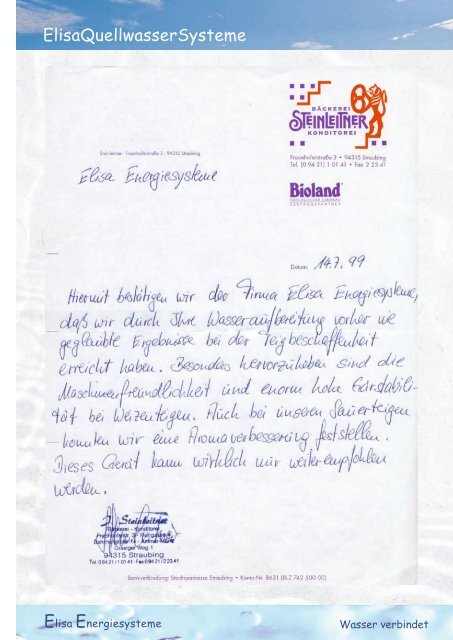 ElisaQuellwasserSysteme
BÄCKEREI
STEINLEITNER
KONDITOREI
Steinleitner · Fraunhoferstraße 3 · 94315 Straubing
Fraunhoferstraße 3 • 94315 Straubing
Tel. (0 94 21) 1 01 41 • Fax 2 23 41
Elisa Energiesysteme
Bioland
ÖKOLOGISCHER LANDBAU
VERTRAGSPARTNER
Datum: 14.7.99
Hiermit bestätigen wir der Firma Elisa Energiesysteme,
daß wir durch Ihre Wasseraufbereitung vorher nie
geglaubte Ergebnisse bei der Teigbeschaffenheit
erreicht haben. Besonders hervorzuheben sind die
Maschinenfreundlichkeit und enorm hohe Gärstabili-
tät bei Weizenteigen. Auch bei unseren Sauerteigen
konnten wir eine Aromaverbesserung feststellen.
Dieses Gerät kann wirklich nur weiterempfohlen
werden.
J. Steinleitner
Bäckerei - Konditorei
94315 Straubing
Tel. 09421/10141 · Fax 09421/22341
Bankverbindung: Stadtsparkasse Straubing • Konto-Nr. 8631 (BLZ 742 500 00)
Elisa Energiesysteme
Wasser verbindet